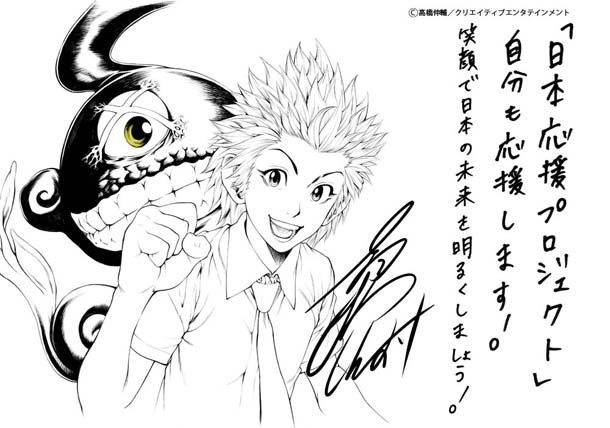 ©高橋伸輔／クリエイティブエンタテインメント
「日本応援プロジェクト」
自分も応援します！。
笑顔で日本の未来を明るくしましょう！。